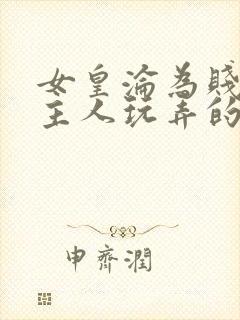 女皇淪為賤
主人玩弄的
申齊潤